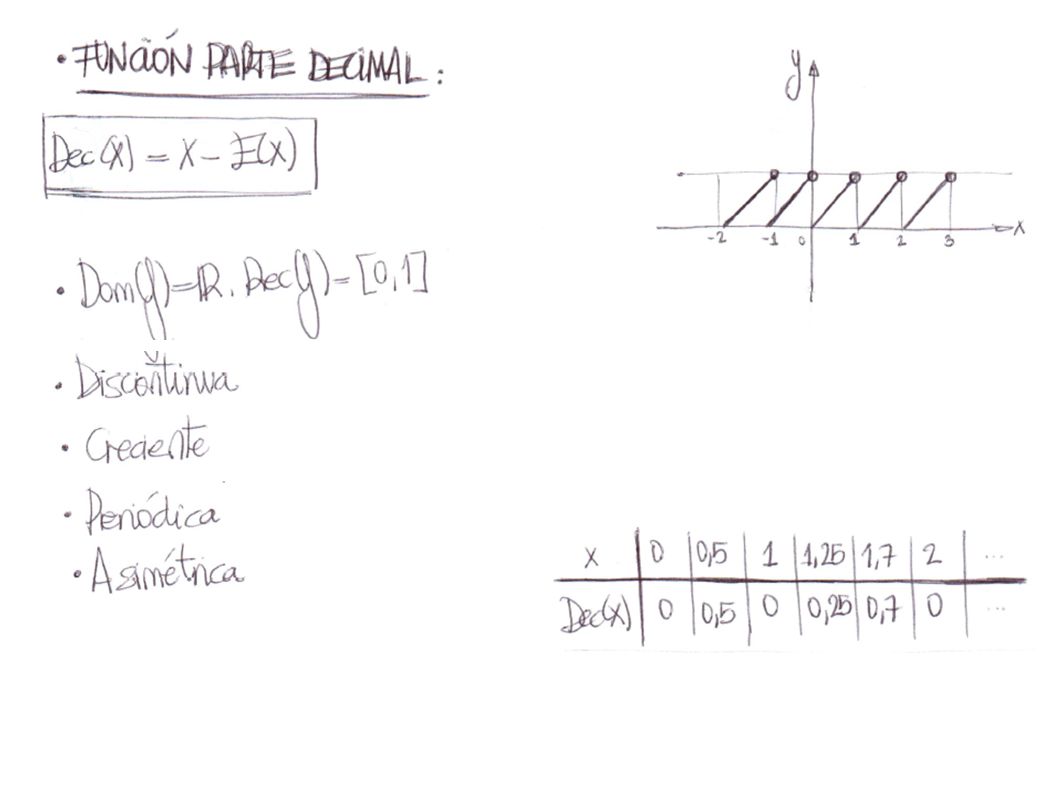 • FUNCIÓN PARTE DECIMAL:
Dec(x) = x - E(x)
• Dom(f)=ℝ. Rec(f)=[0,1]
• Discontinua
• Creciente
• Periódica
• Asimétrica
y
-2 -1 0 1 2 3 x
x 0 0,5 1 1,25 1,7 2 ...
Dec(x) 0 0,5 0 0,25 0,7 0 ...